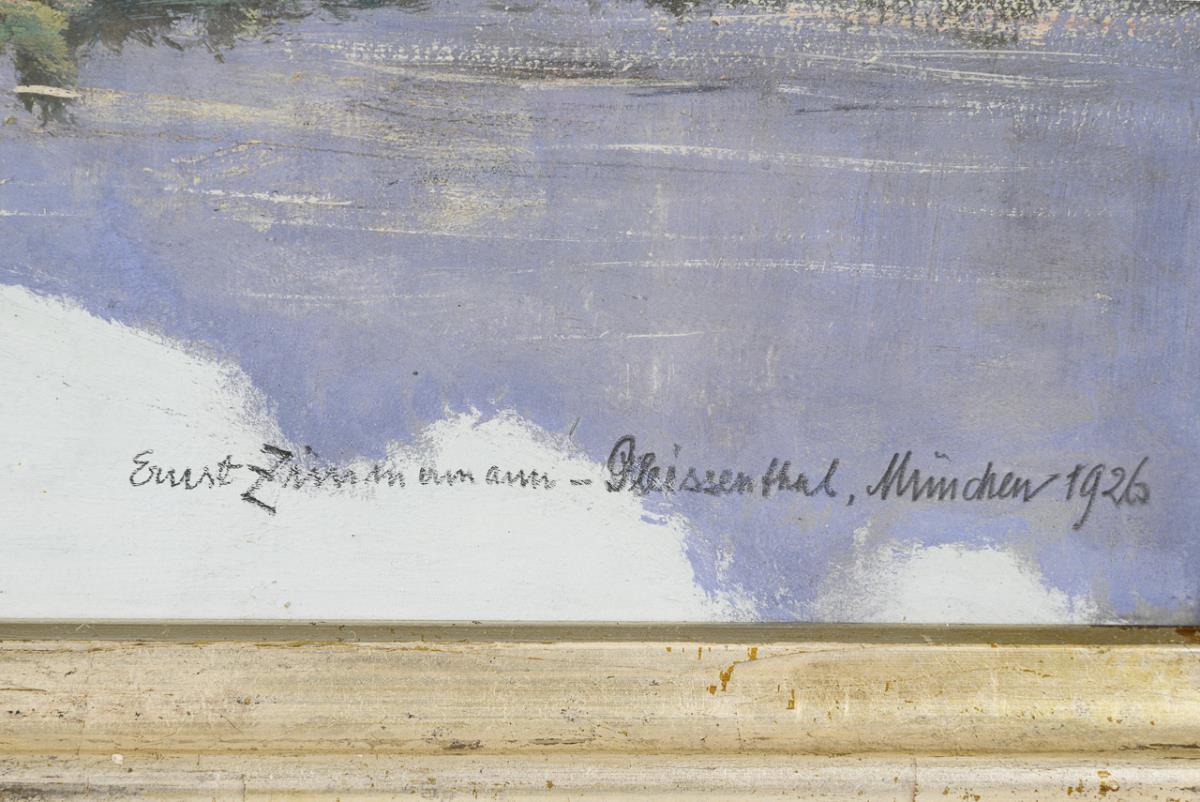 Ernst Zimmermann – Pleissenthal, München 1926